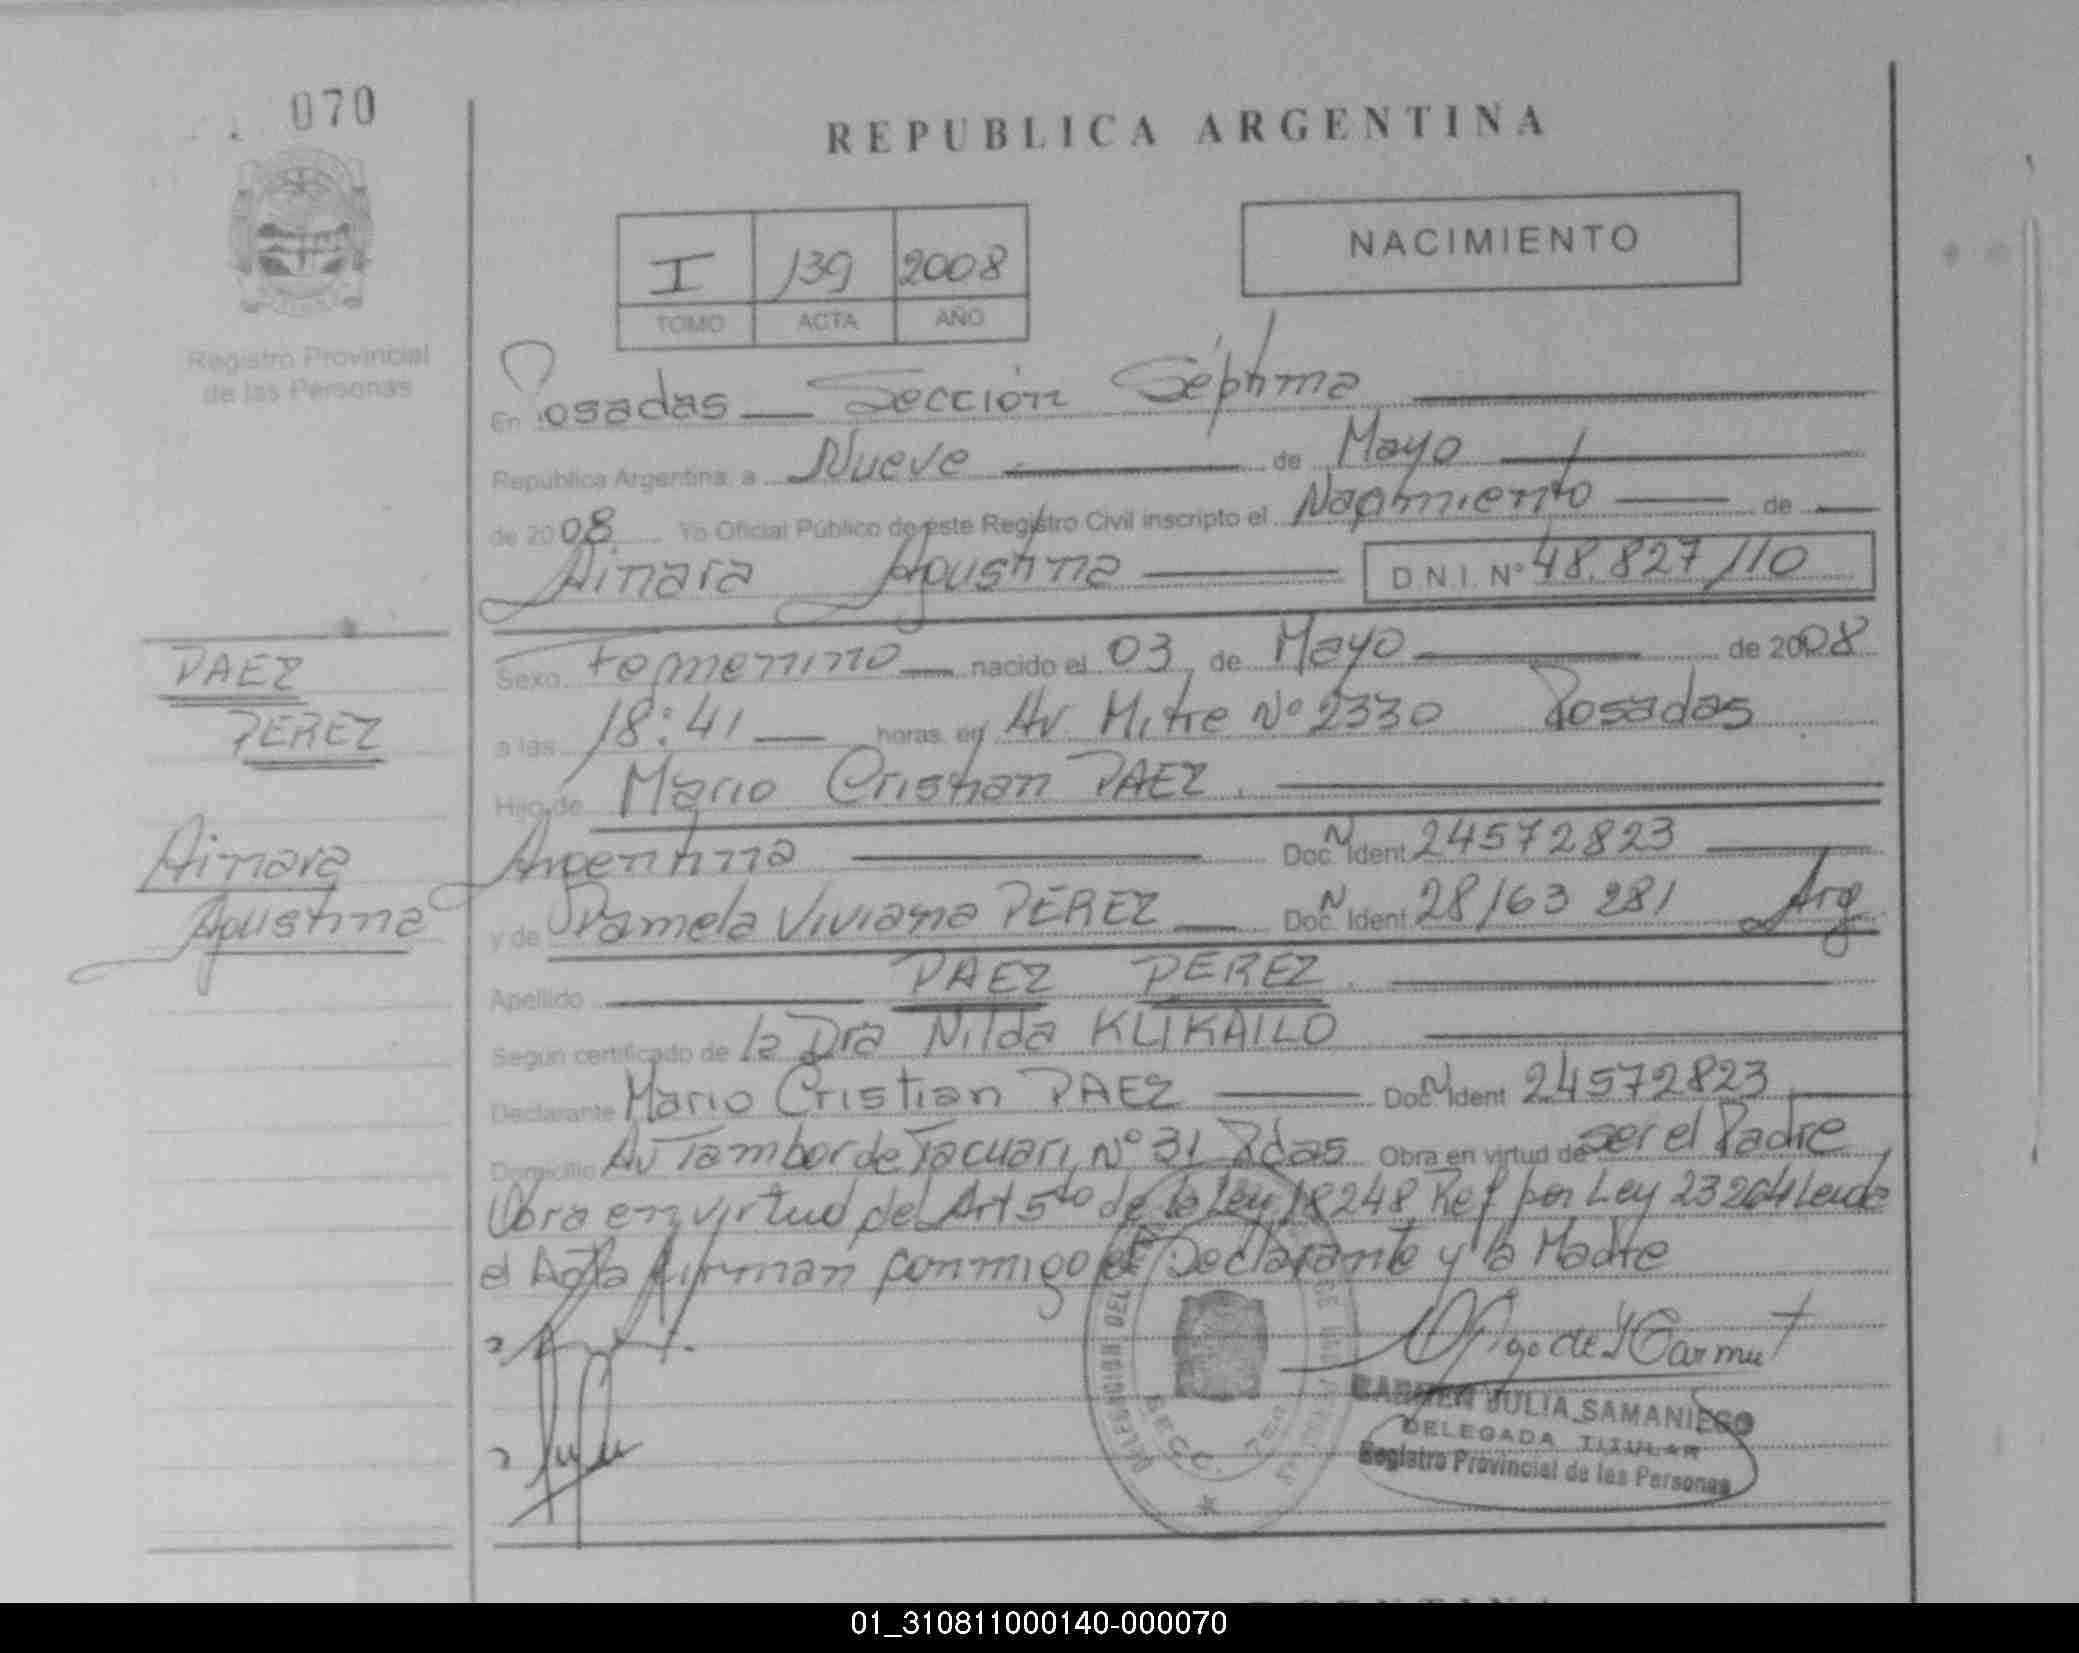 070
REPUBLICA ARGENTINA
I 139 2008
TOMO ACTA AÑO
NACIMIENTO
Registro Provincial
de las Personas
En Posadas Sección Séptima
República Argentina, a Nueve de Mayo
de 2008 Yo Oficial Público de este Registro Civil inscripto el Nacimiento de
Ainara Agustina D.N.I. Nº 48.827.110
Sexo Femenino nacido el 03 de Mayo de 2008
a las 18:41 horas, en Av. Mitre Nº 2330 Posadas
Hijo de Mario Cristian PAEZ
Argentina Doc. Ident N 24572823
y de Pamela Viviana PÉREZ Doc. Ident N 28163281 Arg
Apellido PAEZ PEREZ
Según certificado de la Dra Nilda KLIKAILO
Declarante Mario Cristian PAEZ Doc. Ident N 24572823
Domicilio Av Tambor de Tacuari Nº 31 Pdas Obra en virtud de ser el Padre
Obra en virtud del Art 5to de la Ley 18248 Ref por Ley 23264 Leida
el Acta firman conmigo el Declarante y la Madre
PAEZ
PEREZ
Ainara
Agustina
SECC. 7ma
CARMEN JULIA SAMANIEGO
DELEGADA TITULAR
Registro Provincial de las Personas
01_310811000140-000070